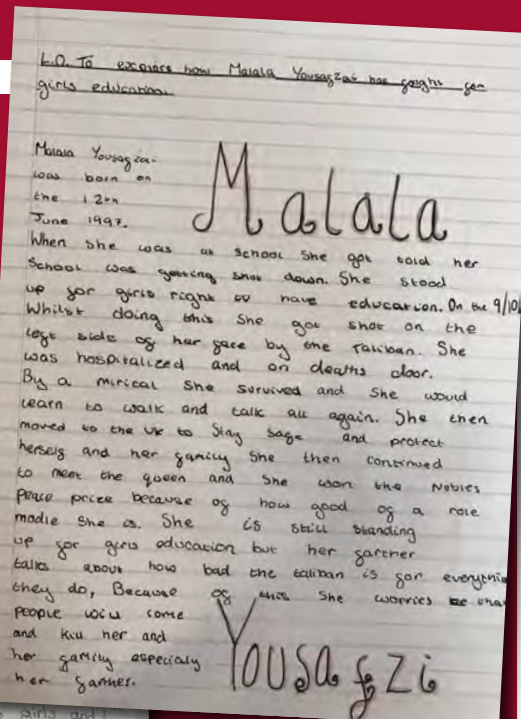 L.O. To explore how Malala Yousagzai has fought for
girls education
Malala Yousagzai
was born on
the 12th
June 1997.
Malala
When she was at school she got told her
school was getting shot down. She stood
up for girls right to have education. On the 9/10/
Whilst doing this she got shot on the
left side of her face by the Taliban. She
was hospitalized and on deaths door.
By a mirical she survived and she would
learn to walk and talk all again. She then
moved to the UK to stay safe and protect
herself and her family she then continued
to meet the queen and she won the Nobles
peace prize because of how good of a role
modle she is. She is still standing
up for girls education but her farther
talks about how bad the taliban is for everythin
they do, Because of this she worries tha
people will come
and kill her and
her family especialy
her farther.
Yousafzi
girls and